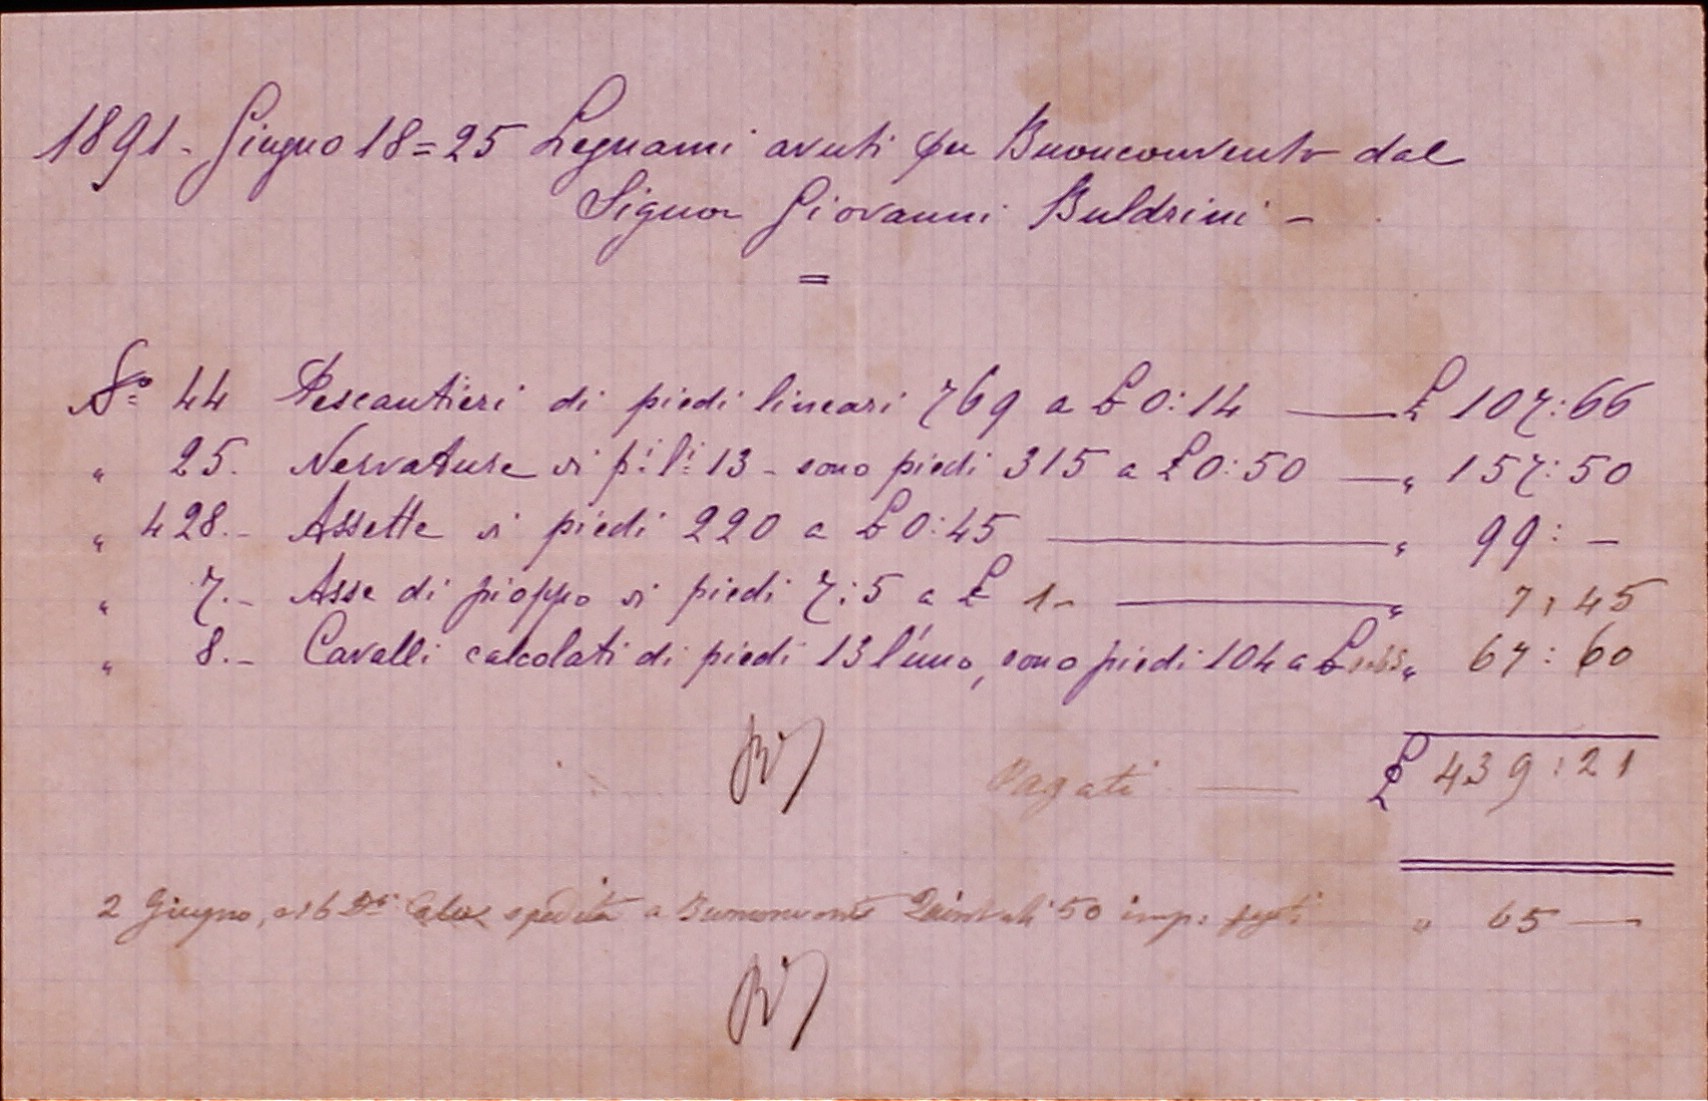 1891 - Giugno 18=25 Legnami avuti per Buonconvento dal
Signor Giovanni Buldrini -
=
No 44 Pescantieri di piedi lineari 769 a £ 0:14 — £ 107:66
" 25. Nervature di p:i l:i 13 - sono piedi 315 a £ 0:50 — " 157:50
" 428.- Assette di piedi 220 a £ 0:45 — " 99: -
" 7.- Asse di pioppo di piedi 7:5 a £ 1- — " 7,45
" 8.- Cavalli calcolati di piedi 13 l'uno, sono piedi 104 a £ 0:65 " 67:60
Pagati — £ 439:21
2 Giugno, e 16 Do Calce spedita a Buonconvento Quintali 50 imp: — " 65 —